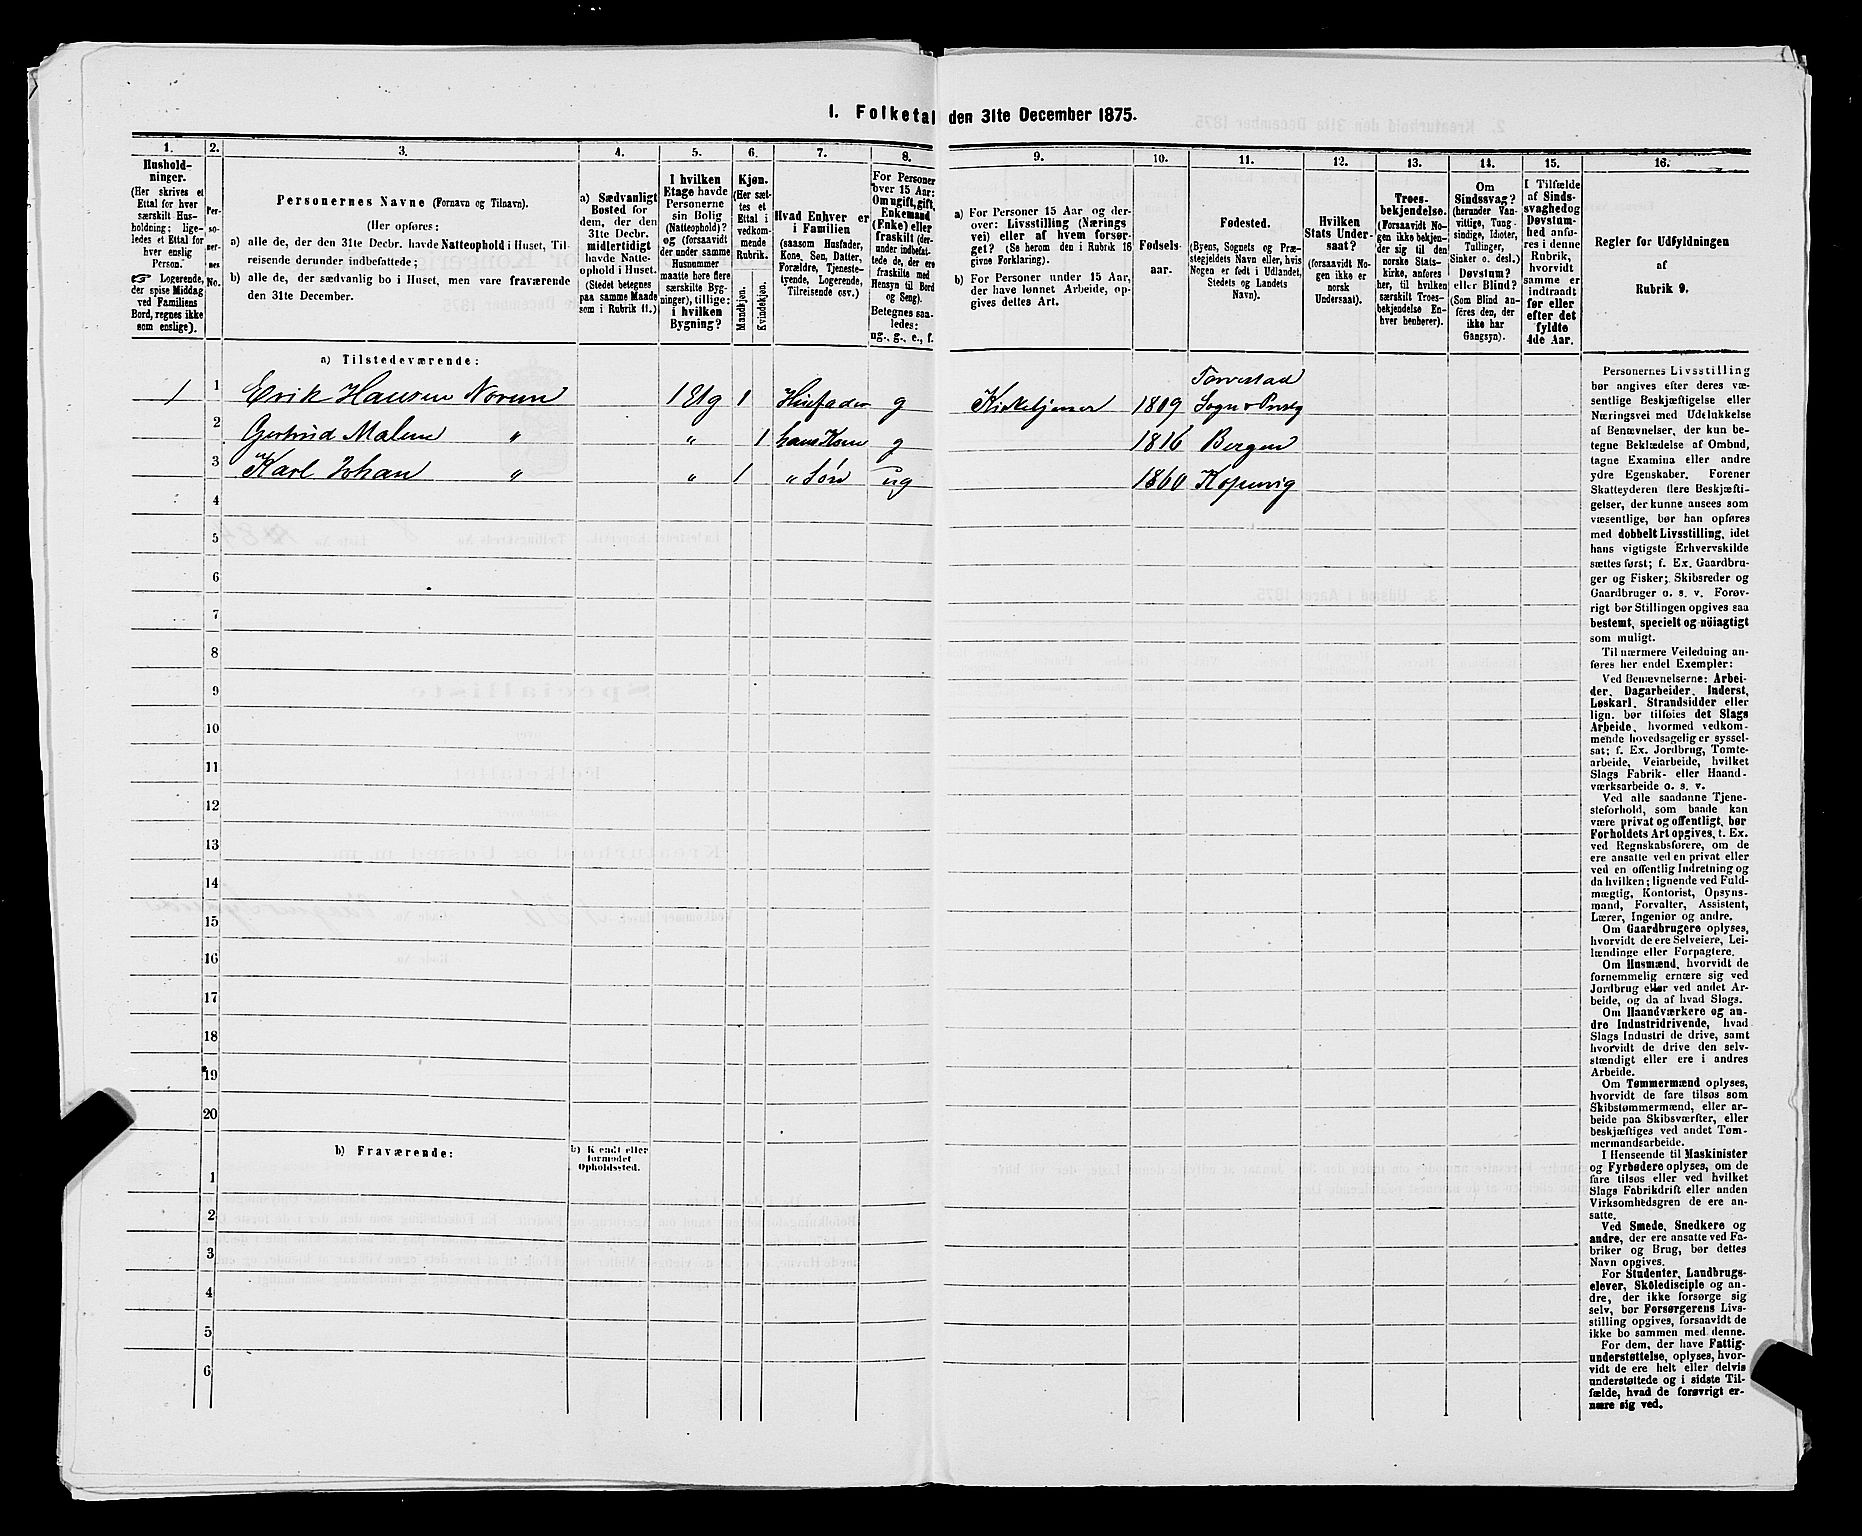 1. Folketal den 31te December 1875.
1.
Hushold-
ninger.
(Her skrives et
Ettal for hver
særskilt Hus-
holdning; lige-
ledes et Ettal for
hver enslig
Person.
☞ Logerende,
der spise Middag
ved Familiens
Bord, regnes ikke
som enslige).
2.
Per-
so-
ner-
nes
No.
3.
Personernes Navne (Fornavn og Tilnavn).
(Her opføres:
a) alle de, der den 31te Decbr. havde Natteophold i Huset, Til-
reisende derunder indbefattede;
b) alle de, der sædvanlig bo i Huset, men vare fraværende
den 31te December.
4.
a) Sædvanligt
Bosted for
dem, der den
31te Decbr.
midlertidigt
havde Natte-
ophold i Huset.
(Stedet betegnes
paa samme Maade
som i Rubrik 11.)
5.
I hvilken
Etage havde
Personerne
sin Bolig
(Natteophold)?
og (forsaavidt
der under samme
Husnummer
maatte høre flere
særskilte Byg-
ninger), tillige:
i hvilken
Bygning?
6.
Kjøn.
(Her sæt-
tes et
Ettal i
vedkom-
mende
Rubrik.
Mandkjøn.
Kvindekjøn.
7.
Hvad Enhver er
i Familien
(saasom Husfader,
Kone, Søn, Datter,
Forældre, Tjeneste-
tyende, Logerende,
Tilreisende osv.)
8.
For Personer
over 15 Aar:
Om ugift, gift,
Enkemand
(Enke) eller
fraskilt (der-
under indbefat-
tede de, der ere
fraskilte med
Hensyn til Bord
og Seng).
Betegnes saa-
ledes:
ug., g., e., f.
9.
a) For Personer 15 Aar og der-
over: Livsstilling (Nærings
vei) eller af hvem forsør-
get? (Se herom den i Rubrik 16
givne Forklaring).
b) For Personer under 15 Aar,
der have lønnet Arbeide, op-
gives dettes Art.
10.
Fødsels-
aar.
11.
Fødested.
(Byens, Sognets og Præ-
stegjeldets Navn eller, hvis
Nogen er født i Udlandet,
Stedets og Landets
Navn).
12.
Hvilken
Stats Under-
saat?
(forsaavidt No-
gen ikke er
norsk
Undersaat).
13.
Troes-
bekjendelse.
(Forsaavidt No-
gen ikke bekjen-
der sig til den
norske Stats-
kirke, anføres
her, til hvilken
særskilt Troes-
bekjendelse En-
hver henhører).
14.
Om
Sindssvag?
(herunder Van-
vittige, Tung-
sindige, Idioter,
Tullinger,
Sinker o. desl.)
Døvstum?
eller Blind?
(Som Blind an-
føres den, der
ikke har
Gangsyn).
15.
I Tilfælde
af Sinds-
svaghed og
Døvstum-
hed anfø-
res i denne
Rubrik,
hvorvidt
samme er
indtraadt
før eller
efter det
fyldte
4de Aar.
16.
Regler for Udfyldningen
af
Rubrik 9.
a) Tilstedeværende:
Torvestad
1 1 Erik Hansen Norum 1 Etg 1 Husfader g Kirketjener 1809 Sogn o Præstg
2 Gertrud Malene " " 1 hans Kone g 1816 Bergen
3 Karl Johan " " 1 " Søn ug 1860 Kopervig
4
5
6
7
8
9
10
11
12
13
14
15
16
17
18
19
20
b) Fraværende:
b) Kjendt eller
formodet
Opholdssted.
1
2
3
4
5
6
Personernes Livsstilling
bør angives efter deres væ-
sentlige Beskjæftigelse eller
Næringsvei med Udelukkelse
af Benævnelser, der kun be-
tegne Beklædelse af Ombud,
tagne Examina eller andre
ydre Egenskaber. Forener
Skatteyderen flere Beskjæfti-
gelser, der kunne ansees som
væsentlige, bør han opføres
med dobbelt Livsstilling, idet
hans vigtigste Erhvervskilde
sættes først; f. Ex. Gaardbru-
ger og Fisker; Skibsreder og
Gaardbruger o. s. v. Forøv-
rigt bør Stillingen opgives saa
bestemt, specielt og nöiagtigt
som muligt.
Til nærmere Veiledning an-
føres her endel Exempler:
Ved Benævnelserne: Arbei-
der, Dagarbeider, Inderst,
Løskarl, Strandsidder eller
lign. bør tilføies det Slags
Arbeide, hvormed vedkom-
mende hovedsagelig er syssel-
sat; f. Ex. Jordbrug, Tomte-
arbeide, Veiarbeide, hvilket
Slags Fabrik- eller Haand-
værksarbeide o. s. v.
Ved alle saadanne Tjene-
steforhold, som baade kan
være privat og offentligt, bør
Forholdets Art opgives, t. Ex.
ved Regnskabsførere, om de
ere ansatte ved en privat eller
ved en offentlig Indretning og
da hvilken; lignende ved Fuld-
mægtig, Kontorist, Opsyns-
mand, Forvalter, Assistent,
Lærer, Ingeniør og andre.
Om Gaardbrugere oplyses,
hvorvidt de ere Selveiere, Lei-
lændinge eller Forpagtere.
Om Husmænd, hvorvidt de
fornemmelig ernære sig ved
Jordbrug eller ved andet Ar-
beide, og da af hvad Slags.
Om Haandværkere og an-
dre Industridrivende, hvad
Slags Industri de drive, samt
hvorvidt de drive den selv-
stændigt eller ere i andres
Arbeide.
Om Tømmermænd oplyses,
hvorvidt de fare tilsøs som
Skibstømmermænd, eller ar-
beide paa Skibsværfter, eller
beskjæftiges ved andet Tøm-
mermandsarbeide.
I Henseende til Maskinister
og Fyrbødere oplyses, om de
fare tilsøs eller ved hvilket
Slags Fabrikdrift eller anden
Virksomhedsgren de ere an-
satte.
Ved Smede, Snedkere og
andre, der ere ansatte ved Fa-
briker og Brug, bør dettes
Navn opgives.
For Studenter, Landbrugs-
elever, Skoledisciple og an-
dre, der ikke forsørge sig
selv, bør Forsørgerens Livs-
stilling opgives, forsaavidt de
ikke bo sammen med denne.
For dem, der have Fattig-
understøttelse, oplyses, hvor-
vidt de ere helt eller delvis
understøttede og i sidste Til-
fælde, hvad de forøvrigt er-
nære sig ved.